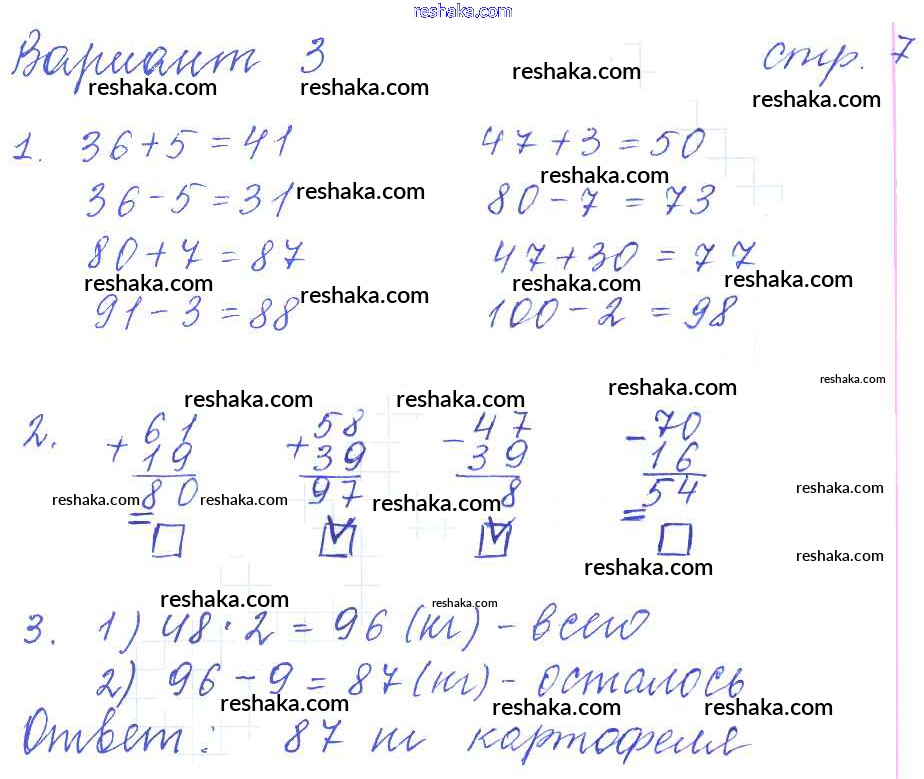 reshaka.com
Вариант 3 стр. 7
reshaka.com reshaka.com reshaka.com reshaka.com
1. 36+5=41 47+3=50
reshaka.com reshaka.com
36-5=31 80-7=73
80+7=87 47+30=77
reshaka.com reshaka.com reshaka.com reshaka.com
91-3=88 100-2=98
reshaka.com reshaka.com reshaka.com reshaka.com
2. + 61 + 58 - 47 - 70
19 39 39 16
80 97 8 54
reshaka.com reshaka.com reshaka.com reshaka.com
= =
reshaka.com reshaka.com
reshaka.com reshaka.com
3. 1) 48·2=96 (кг) - всего
2) 96-9=87 (кг) - осталось
reshaka.com reshaka.com reshaka.com
Ответ: 87 кг картофеля